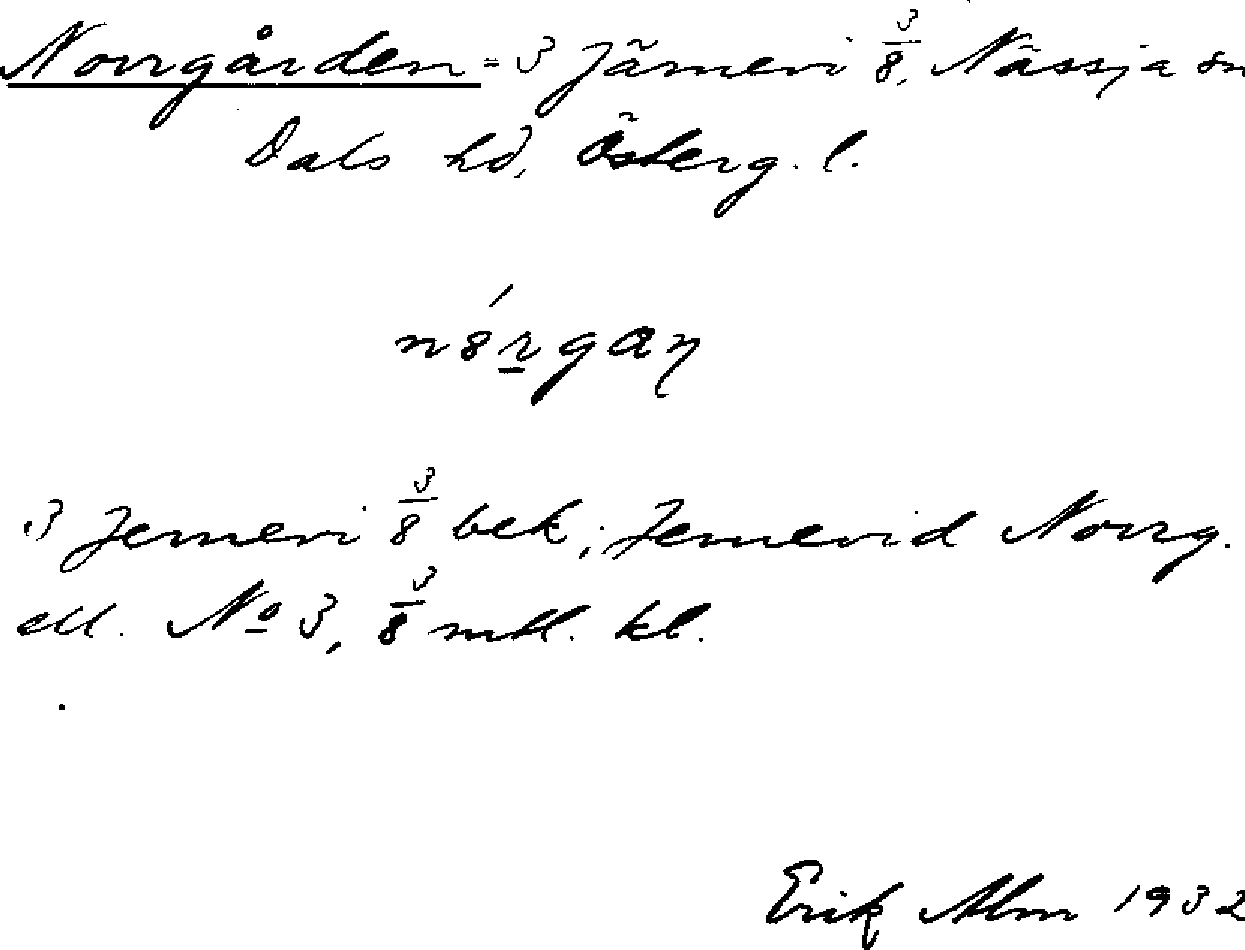 Norrgården = 3 Järnevi 3/8, Nässja sn
Dals hd, Österg. l.
3 Jernevi 3/8 bek; Jernevid Norrg.
ell. No 3, 3/8 mtl. kl.
Erik Alm 1932